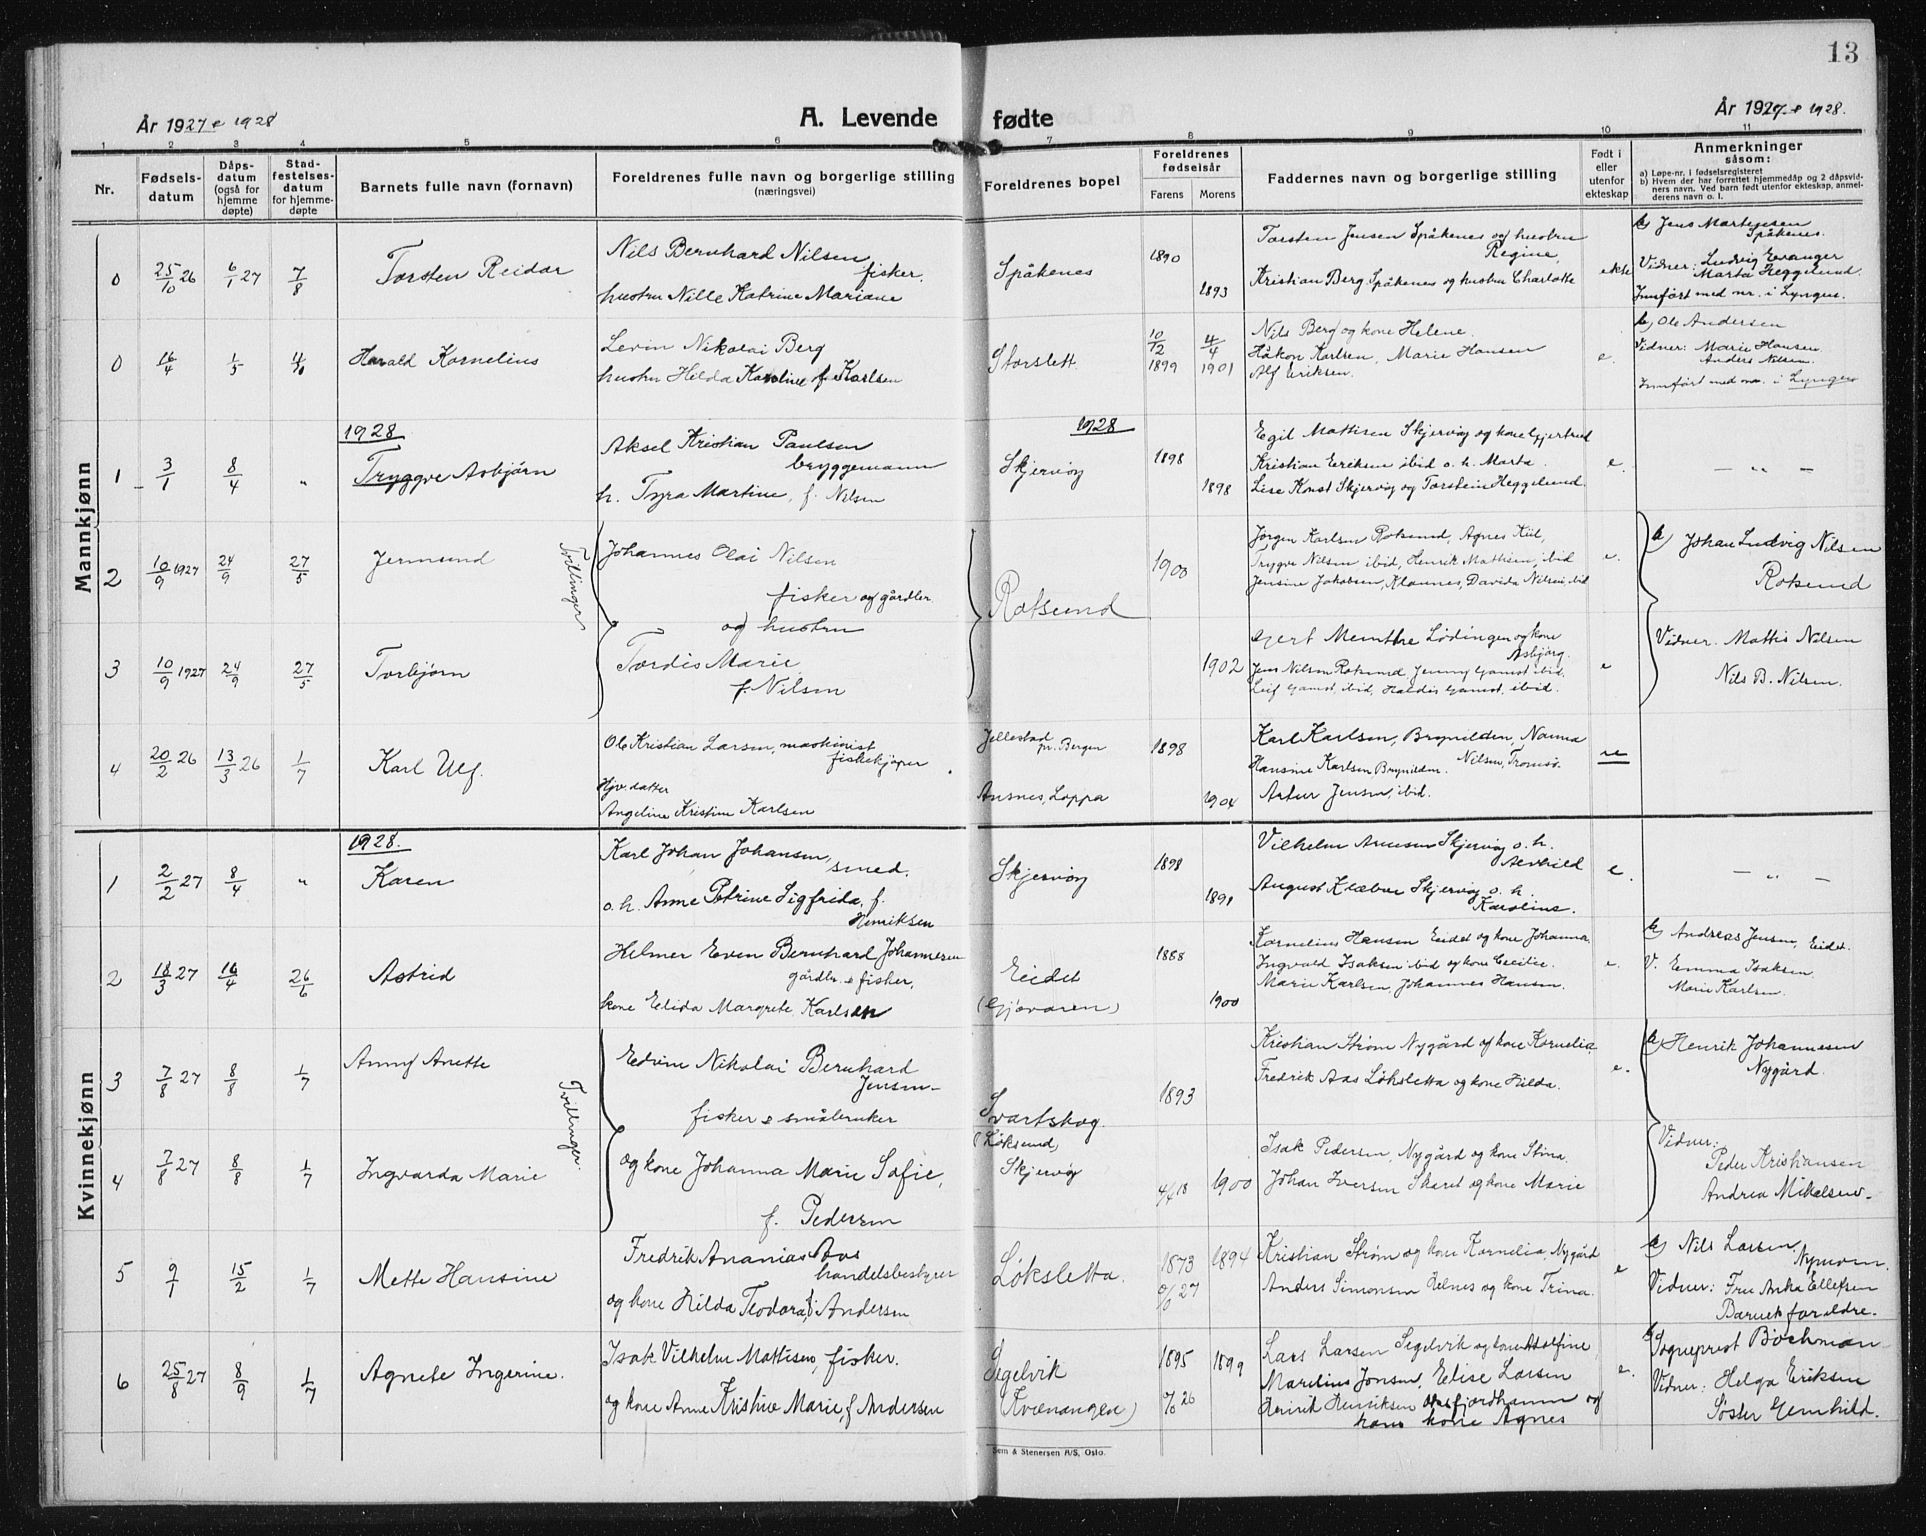 13
År 1927 & 1928
A. Levende fødte
År 1927 & 1928.
1 2 3 4 5 6 7 8 9 10 11
Nr.
Fødsels-
datum
Dåps-
datum
(også for
hjemme
døpte)
Stad-
festelses-
datum
for hjemme-
døpte
Barnets fulle navn (fornavn)
Foreldrenes fulle navn og borgerlige stilling
(næringsvei)
Foreldrenes bopel
Foreldrenes
fødselsår
Farens Morens
Faddernes navn og borgerlige stilling
Født i
eller
utenfor
ekteskap
Anmerkninger
såsom:
a) Løpe-nr. i fødselsregisteret
b) Hvem der har forrettet hjemmedåp og 2 dåpsvid-
ners navn. Ved barn født utenfor ekteskap, anmel-
derens navn o. l.
Mannkjønn
0 25/10 26 6/1 27 7/8 Torsten Reidar
Nils Bernhard Nilsen
fisker.
hustru Nille Katrine Mariane
Spåkenes
1890
1893
Torsten Jensen Spåkenes og hustru
Regine,
Kristian Berg Spåkenes og hustru Charlotte
ekte
b) Jens Martinsen
Spåkenes.
Vidner: Ludvig Evanger
Marta Heggelund.
Innført med nr. i Lyngen
0 16/4 1/5 4/10 Harald Kornelius
Levin Nikolai Berg
hustru Hilda Karoline f. Karlsen
Storslett
10/12 1899
4/4 1901
Nils Berg og kone Helene.
Håkon Karlsen, Marie Hansen
Alf Eriksen.
e.
b) Ole Andersen
Vidner: Marie Hansen
Anders Nilsen.
Innført med nr. i Lyngen
1928
1 3/1 8/4 " Tryggve Asbjørn
Aksel Kristian Paulsen
bryggemann
h. Tyra Martine, f. Nilsen
1928
Skjervøy
1898
1898
Egil Mattisen Skjervøy og kone Gjertrud
Kristian Eriksen ibid o. h. Marta.
Lise Konst Skjervøy og Torstein Heggelund.
e.
— " —
2 10/9 1927 24/9 27/5 Jermund
Tvillinger
Johannes Olai Nilsen
fisker og gårdbr.
og hustru
Rotsund
1900
Jørgen Karlsen Rotsund, Agnes Kiil,
Trygve Nilsen ibid, Henrik Mathisen, ibid
Jensine Jakobsen, Klannes, Davida Nilsen, ibid
e.
b) Johan Ludvig Nilsen
Rotsund
3 10/9 1927 24/9 27/5 Torbjørn
Tordis Marie
f. Nilsen
1902
Gert Menthe Lødingen og kone
Asbjørg.
Jens Nilsen Rotsund Jenny Gamst ibid.
Leif Gamst, ibid, Haldis Gamst, ibid.
e
Vidner. Mattis Nilsen
Nils B. Nilsen.
4 20/2 26 13/3 26 1/7 Karl Ulf.
Ole Kristian Larsen, maskinist
fiskekjøper
Hjv. datter
Angeline Kristine Karlsen
Jellestad
pr. Bergen
Ansnes, Loppa
1898
1904
Karl Karlsen, Brynilden, Nanna
Nilsen, Tromsø.
Hansine Karlsen Brynilden.
Artur Jensen, ibid.
ue
Kvinnekjønn
1928.
1 2/2 27 8/4 " Karen
Karl Johan Johansen,
smed.
o. h. Anne Petrine Sigfrida, f.
Henriksen
Skjervøy
1898
1891
Vilhelm Arnesen Skjervøy o. h.
Alvhild
August Klæboe Skjervøy o. h.
Karoline.
e.
— " —
2 18/3 27 16/4 26/6 Astrid
Helmer Even Bernhard Johannesen
gårdbr. & fisker,
kone Elida Margrete Karlsen
Eidet
(Gjøvaren)
1888
1900
Kornelius Hansen Eidet og kone Johanna
Ingvald Isaksen ibid og kone Cecilie.
Marie Karlsen, Johannes Hansen.
e.
b) Andreas Jensen, Eidet.
V. Emma Isaksen
Marie Karlsen.
3 7/8 27 8/8 1/7 Anny Anette
Tvillinger
Edvine Nikolai Bernhard
Jensen
fisker & småbruker
Svartskog.
(Løksund,
Skjervøy
1893
Kristian Strøm Nygård og kone Kornelia
Fredrik Aas Løksletta og kone Hilda.
e.
b) Henrik Johannesen
Nygård.
4 7/8 27 8/8 1/7 Ingvarda Marie
og kone Johanna Marie Sofie,
f. Pedersen
4/4 18
1900
Isak Pedersen, Nygård og kone Stina
Johan Iversen Skaret og kone Marie
Vidner:
Peder Kristiansen
Andrea Mikelsen.
5 9/1 15/2 1/7 Mette Hansine
Fredrik Ananias Aas
handelsbestyrer
og kone Hilda Teodora, f. Andersen
Løksletta.
1873 1894
0/0 27
Kristian Strøm og kone Kornelia, Nygård
Anders Simonsen Helnes og kone Trina.
e
b) Nils Larsen,
Nymoen.
Vidner: Fru Anka Ellefsen
Barnets foreldre.
6 25/8 27 8/9 1/7 Agnete Ingerine.
Isak Vilhelm Mattisen, fisker.
og kone Anne Kristine Marie, f. Andersen
Segelvik
Kvænangen)
1895 1899
0/0 26
Lars Larsen Segelvik og kone Adolfine
Marelius Jensen, Elise Larsen
Henrik Henriksen Olafjordhamn og
hans kone Agnes
e.
b) Sogneprest Bochman
Vidner: Helga Eriksen
Søster Gunhild.
Sem & Stenersen A/S, Oslo.